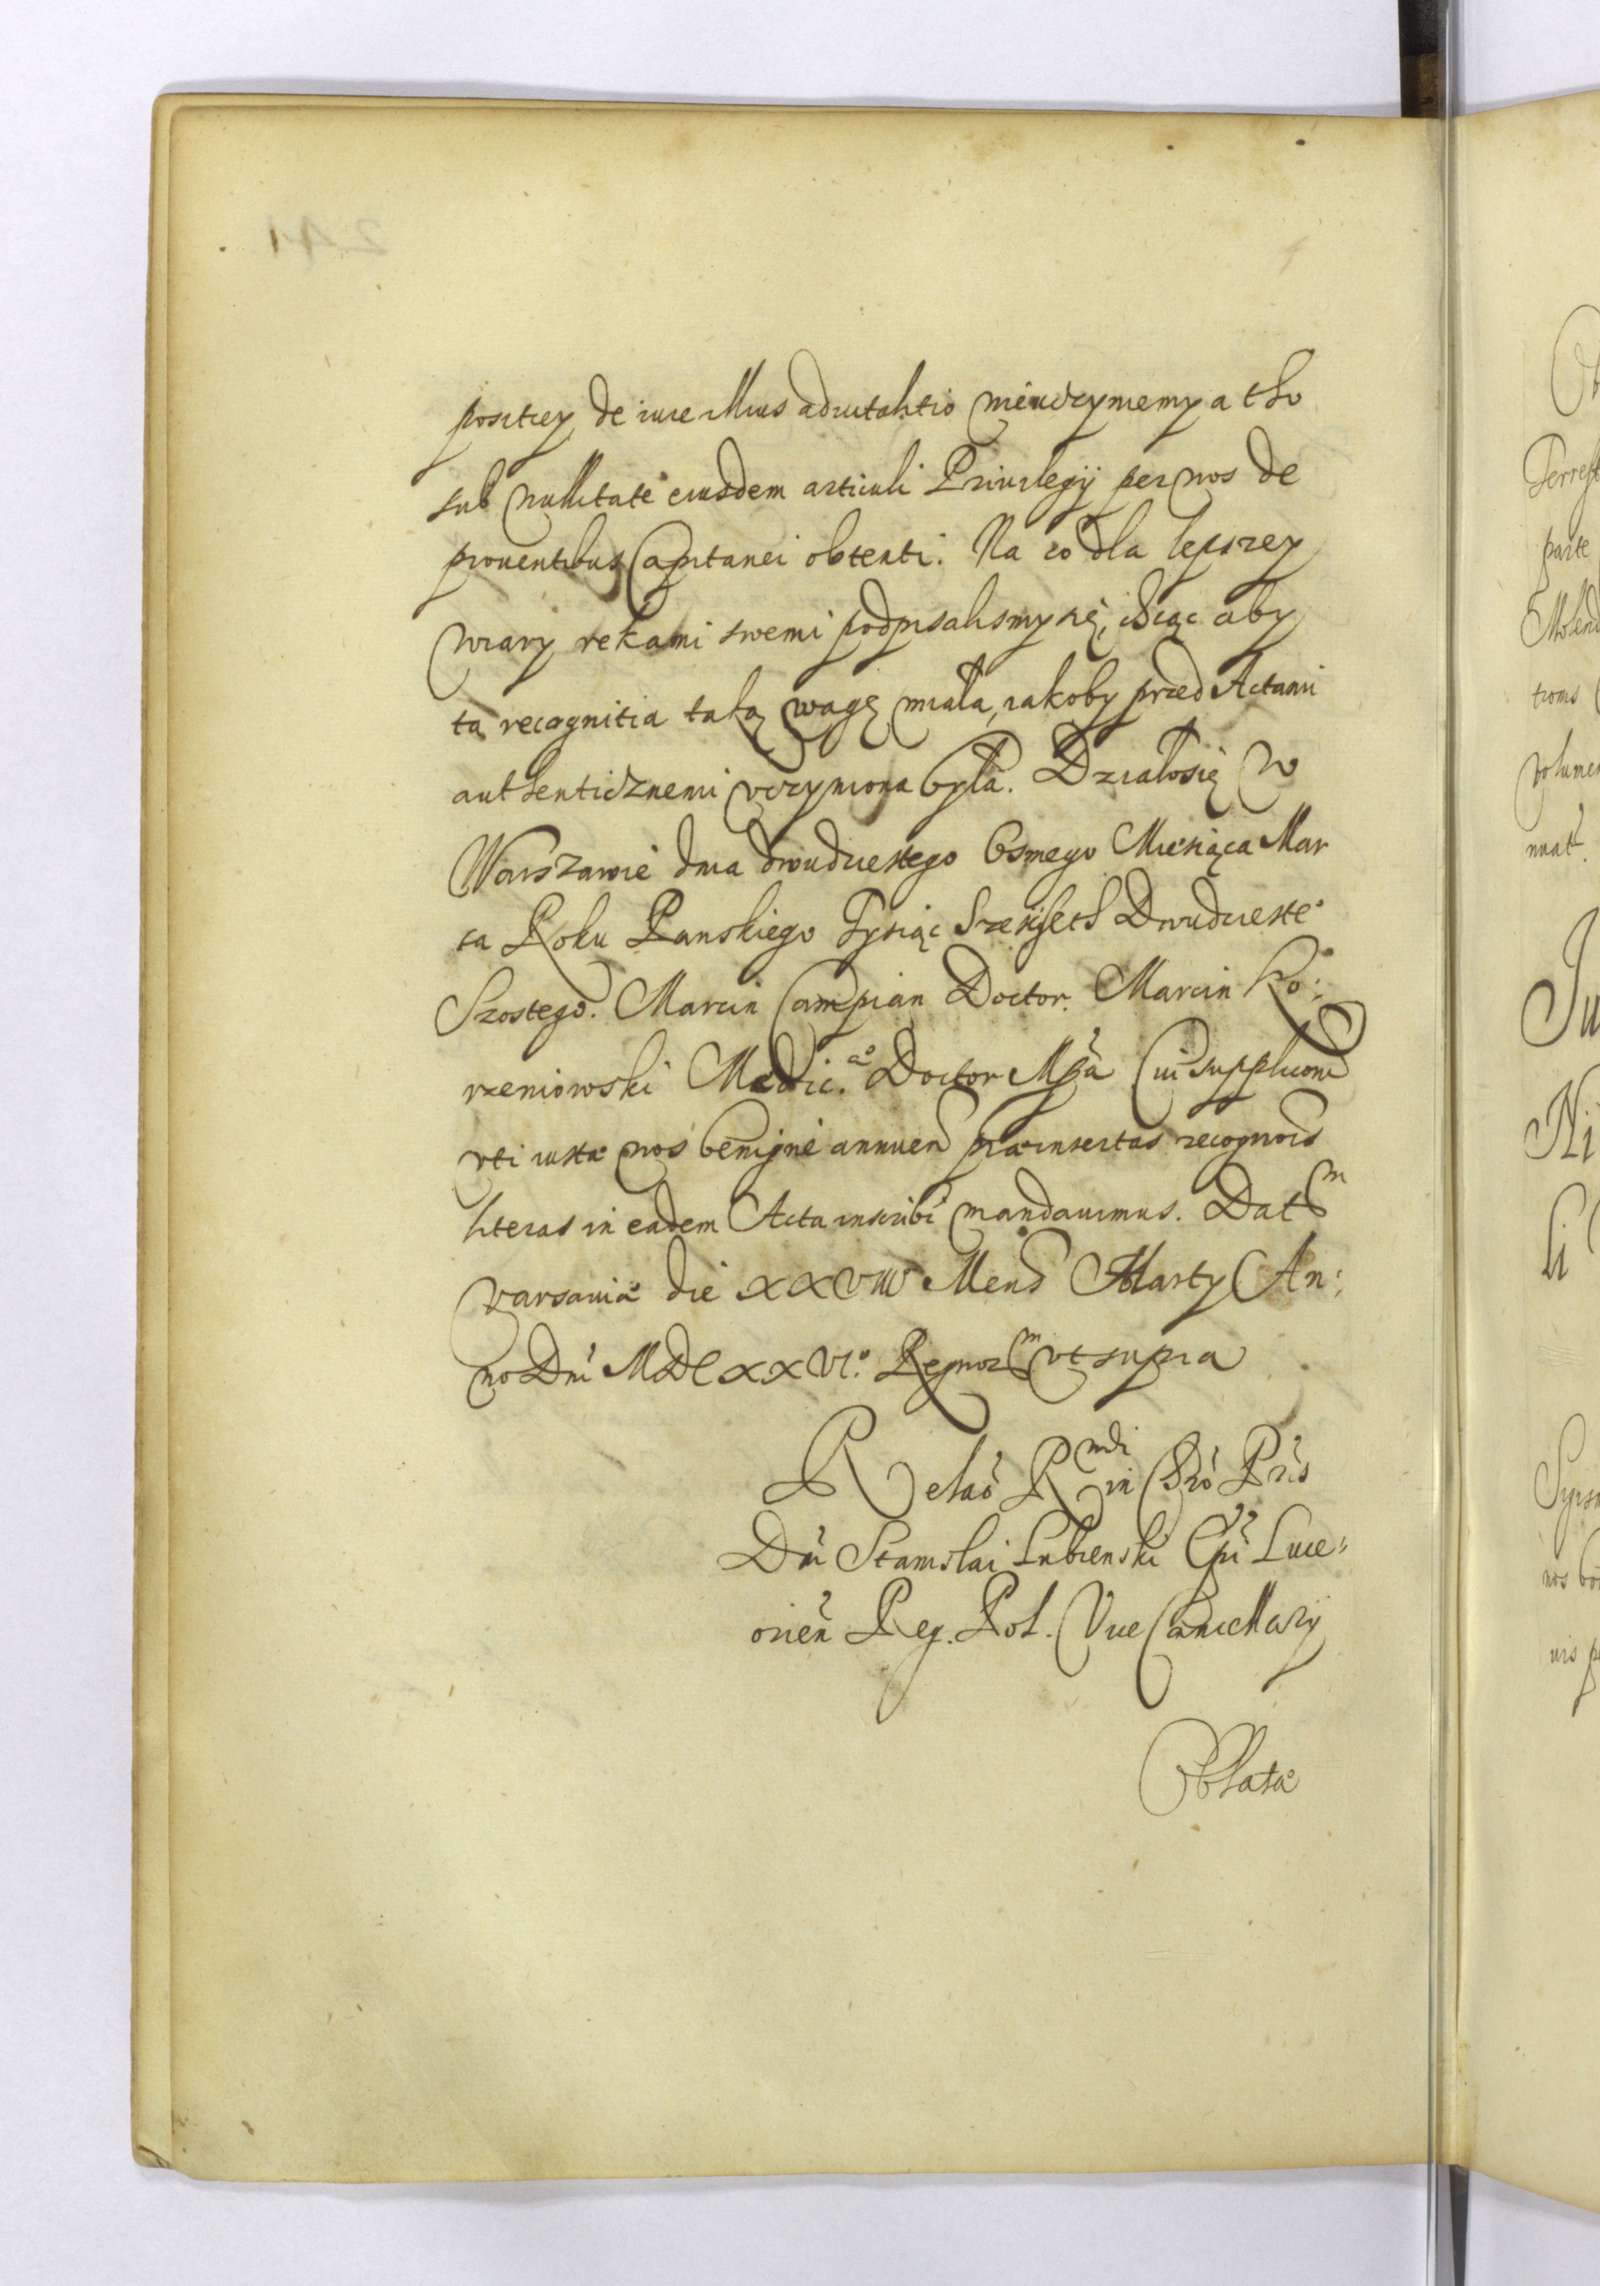 positiey de iure illius aduitalitio nieuczyniemy a tho
sub nullitate eiusdem articuli Priuilegij per nos de
prouentibus Capitanei obtenti. Na co dla lepszey
wiary rekami swemi podpisalismy się, chcąc aby
ta recognitia taką wagę miała, iakoby przed Actami
authenticznemi vczyniona była. Działosię w
Warszawie dnia dwudziestego Osmego Miesiąca Mar
ca Roku Panskiego Tysiąc Szescseth Dwudzieste°
Szostego. Marcin Campian Doctor. Marcin Ko:
rzeniowski Medic. Doctor Mpa Cui suppliconi
vti iusta nos benigne annuen præinsertas recognois
literas in eadem Acta inscribi mandauimus. Dat
Varsauiæ die XXVIII Mens Marty An:
no Dni MDCXXVI° Regnor vt supra
Relao R^ndi in Chro Pris
Dni Stanislai Lubienski Epi Luce:
orien Reg. Pol. Vice Cancellarij
Oblata